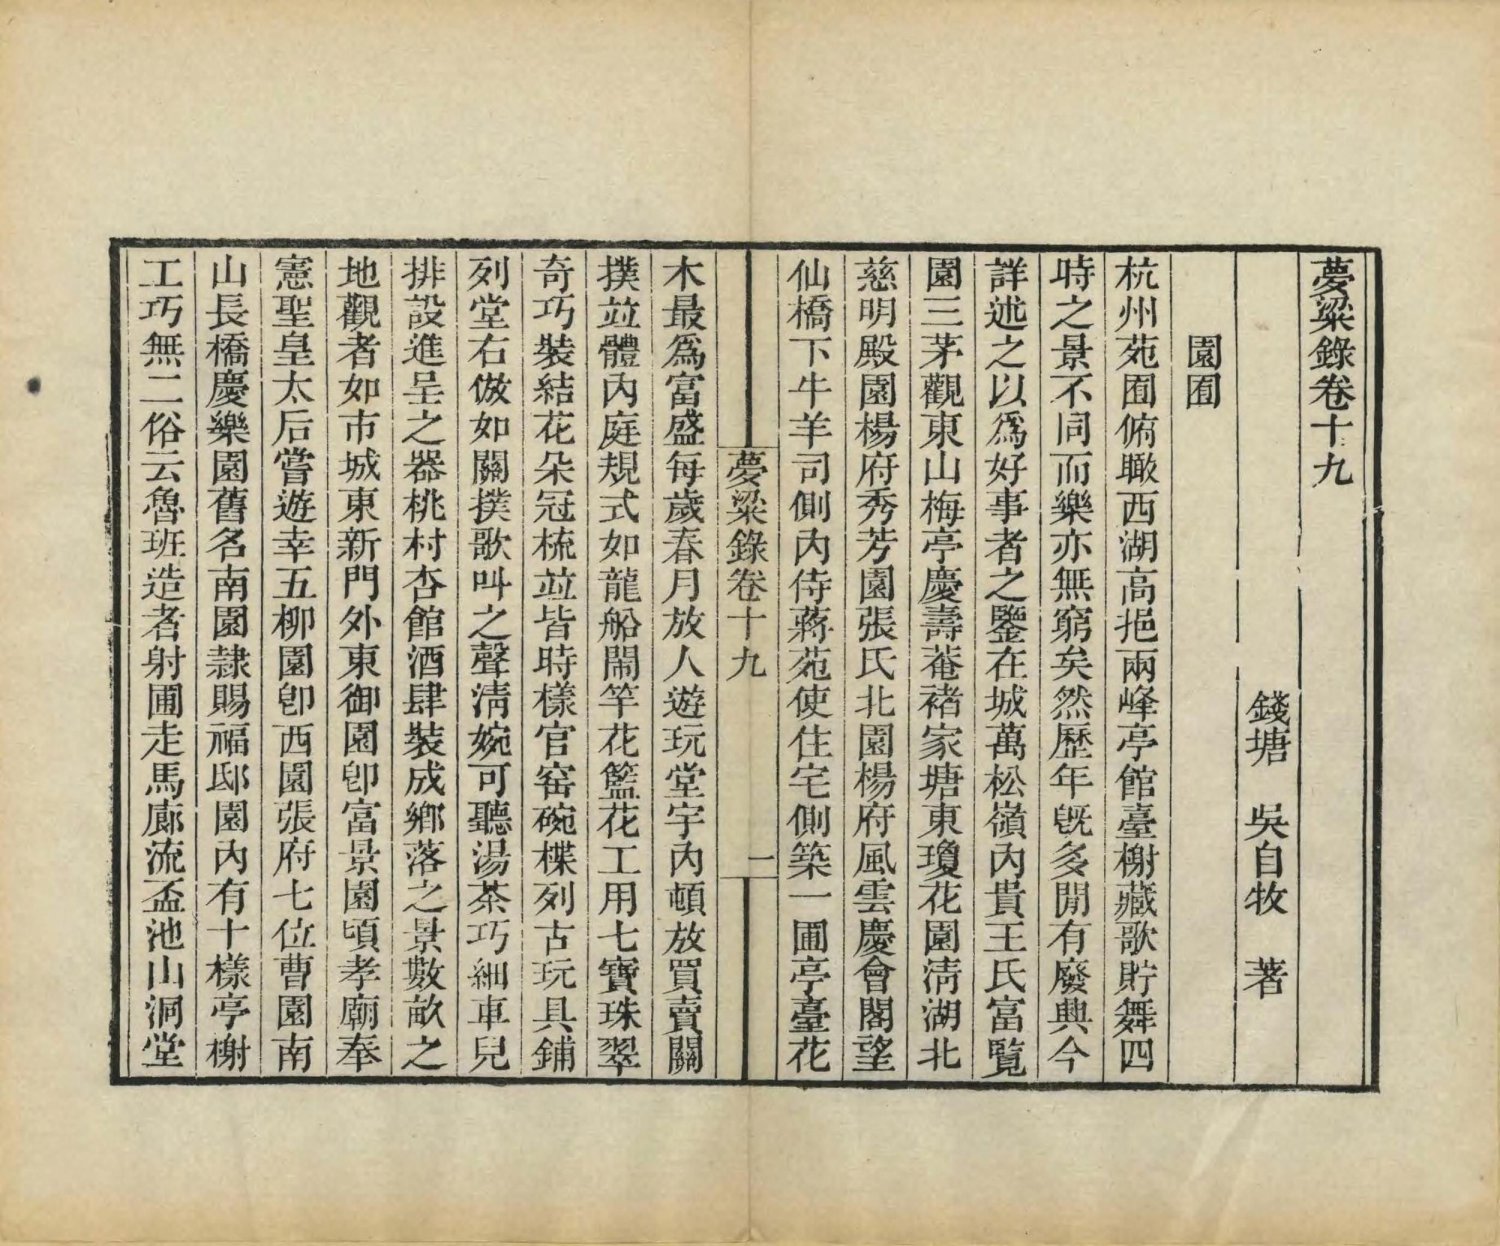 夢粱錄卷十九
錢塘 吳自牧 著
園囿
杭州苑囿俯瞰西湖高挹兩峰亭館臺榭藏歌貯舞四
時之景不同而樂亦無窮矣然歷年旣多閒有廢興今
詳述之以爲好事者之鑒在城萬松嶺內貴王氏富覽
園三茅觀東山梅亭慶壽菴褚家塘東瓊花園淸湖北
慈明殿園楊府秀芳園張氏北園楊府風雲慶會閣望
仙橋下牛羊司側內侍蔣苑使住宅側築一圃亭臺花
夢粱錄卷十九
一
木最爲富盛每歲春月放人遊玩堂宇內頓放買賣關
撲並體內庭規式如龍船鬧竿花籃花工用七寶珠翠
奇巧裝結花朵冠梳並皆時樣官窑碗楪列古玩具鋪
列堂右倣如關撲歌叫之聲淸婉可聽湯茶巧細車兒
排設進呈之器桃村杏館酒肆裝成鄉落之景數畝之
地觀者如市城東新門外東御園卽富景園頃孝廟奉
憲聖皇太后嘗遊幸五柳園卽西園張府七位曹園南
山長橋慶樂園舊名南園隸賜福邸園內有十樣亭榭
工巧無二俗云魯班造者射圃走馬廊流盃池山洞堂